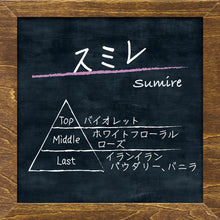 スミレ
Sumire
Top バイオレット
Middle ホワイトフローラル
ローズ
Last イランイラン
パウダリー、バニラ